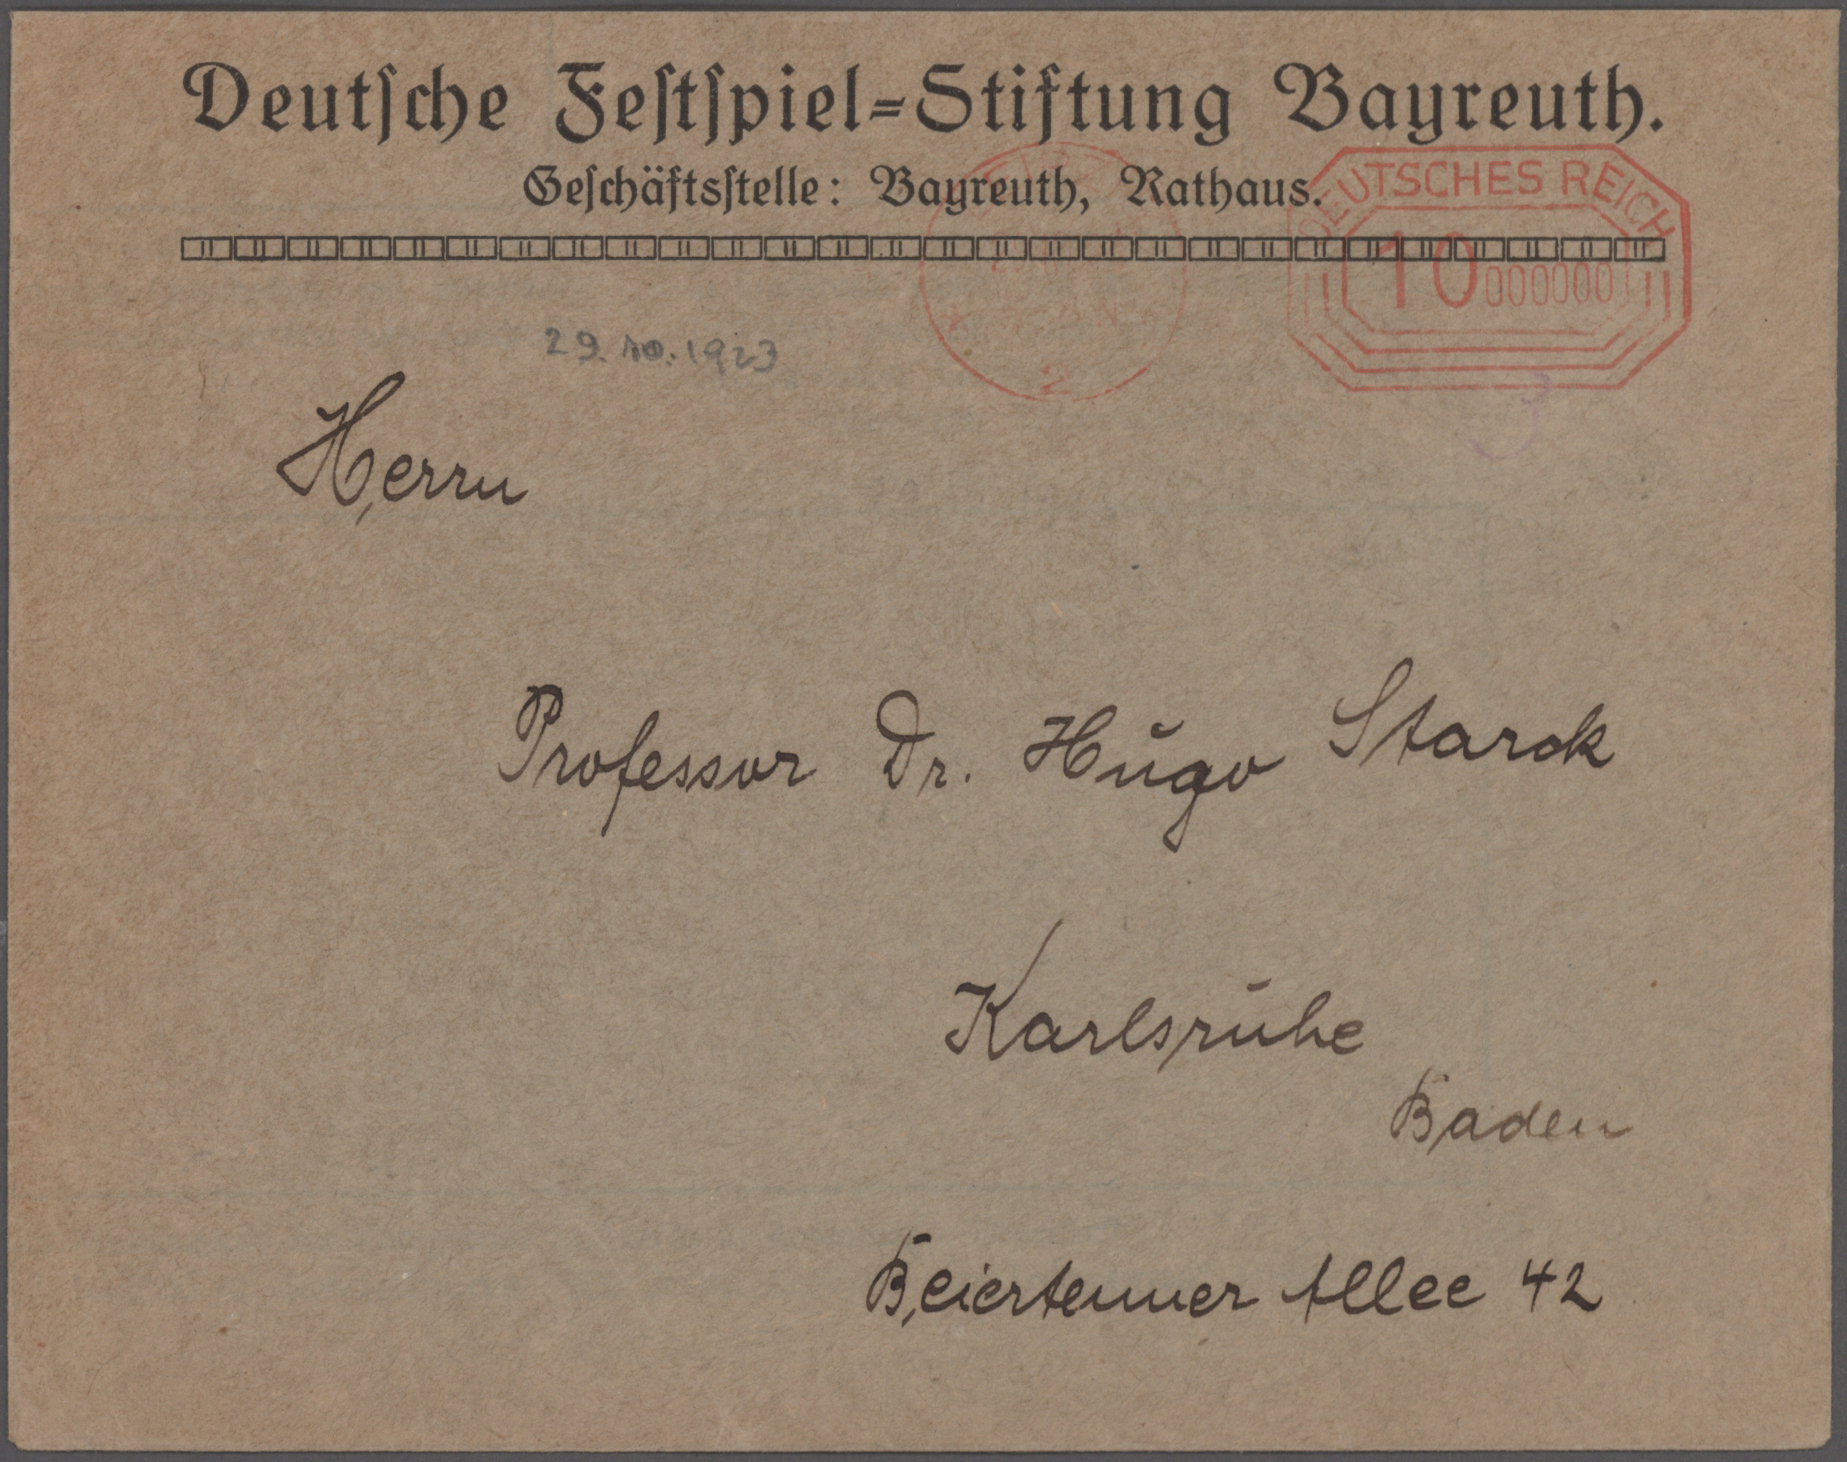 Deutſche Feſtſpiel=Stiftung Bayreuth.
Geſchäftsſtelle: Bayreuth, Rathaus.
DEUTSCHES REICH
10000000
2
29.10.1923
3
Herrn
Professor Dr. Hugo Starck
Karlsruhe
Baden
Beiertenner Allee 42